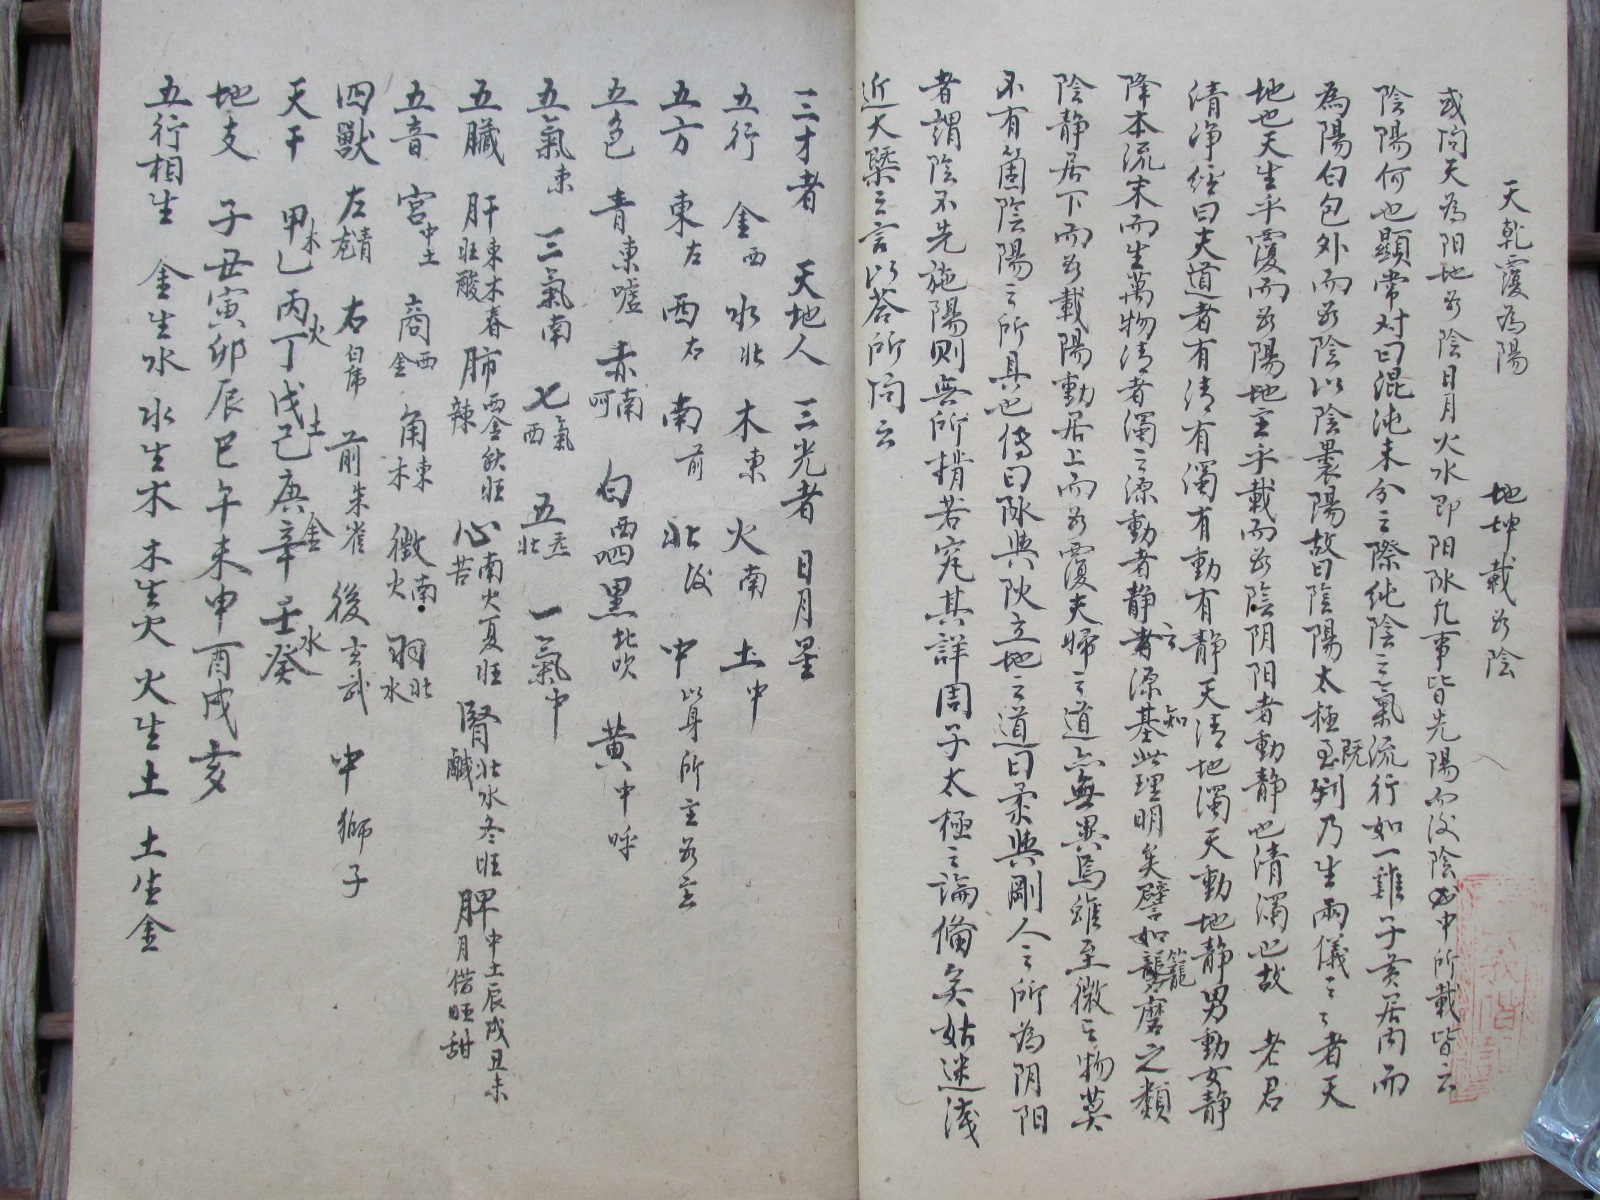 天乾覆為陽　地坤載為陰
或问天為阳地為陰日月火水即阳阥凡事皆先陽而後陰此中所載皆云
陰陽何也顯常对曰混沌未分之際純陰之氣流行如一雞子黄居内而
為陽白包外而為陰以陰裹陽故曰陰陽太極既至判乃生兩儀〻〻者天
地也天生乎覆而為陽地主乎載而為陰阴阳者動静也清濁也故　老君
清净經曰夫道者有清有濁有動有静天清地濁天動地静男動女静
降本流末而生萬物清者濁之源動者静之基知此理明矣譬如籠磨之類
陰静居下而為載陽動居上而為覆夫婦之道亦無異焉雖至微之物莫
不有箇陰陽之所具也傳曰阥與阦立地之道曰柔與剛人之所為阴阳
者謂陰不先施陽则無所精若究其詳周子太極之論備矣姑述浅
近大槩之言以答所问云
三才者　天地人　三光者　日月星
五行　金西　水北　木東　火南　土中
五方　東左　西右　南前　北後　中以身所主為主
五色　青東嘘　赤南呵　白西呬　黑北吹　黄中呼
五氣東　三氣南　七氣西　五炁北　一氣中
五臟　肝東木春旺酸　肺西金秋旺辣　心南火夏旺苦　腎北水冬旺鹹　脾中土辰戌丑未月借旺甜
五音　宫中土　商西金　角東木　徵南火　羽北水
四獸　左青龙　右白虎　前朱雀　後玄武　中獅子
天干　甲乙木丙丁火戊己土庚辛金壬癸水
地支　子丑寅卯辰巳午未申酉戌亥
五行相生　金生水　水生木　木生火　火生土　土生金